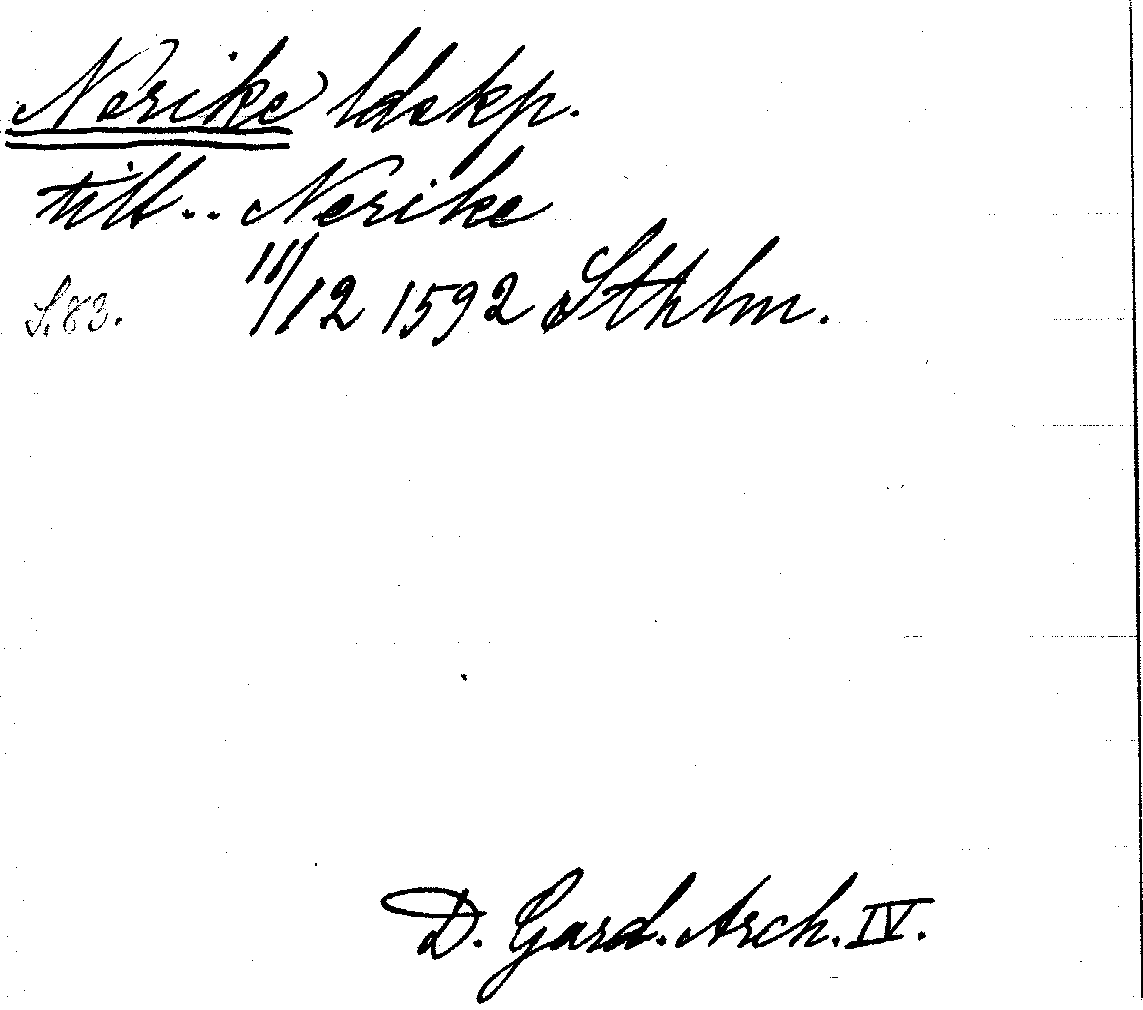 Nerike ldskp.
till.. Nerike
S.83. 18/12 1592 Sthlm.
D. Gard. Arch. IV.